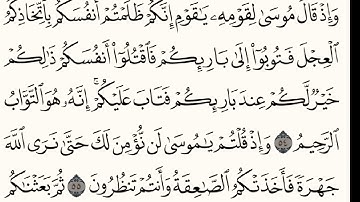 وَإِذْ قَالَ مُوسَىٰ لِقَوْمِهِۦ يَٰقَوْمِ إِنَّكُمْ ظَلَمْتُمْ أَنفُسَكُم بِٱتِّخَاذِكُمُ
ٱلْعِجْلَ فَتُوبُوٓا۟ إِلَىٰ بَارِئِكُمْ فَٱقْتُلُوٓا۟ أَنفُسَكُمْ ذَٰلِكُمْ
خَيْرٌ لَّكُمْ عِندَ بَارِئِكُمْ فَتَابَ عَلَيْكُمْ ۚ إِنَّهُۥ هُوَ ٱلتَّوَّابُ
ٱلرَّحِيمُ ٥٤ وَإِذْ قُلْتُمْ يَٰمُوسَىٰ لَن نُّؤْمِنَ لَكَ حَتَّىٰ نَرَى ٱللَّهَ
جَهْرَةً فَأَخَذَتْكُمُ ٱلصَّٰعِقَةُ وَأَنتُمْ تَنظُرُونَ ٥٥ ثُمَّ بَعَثْنَٰكُم